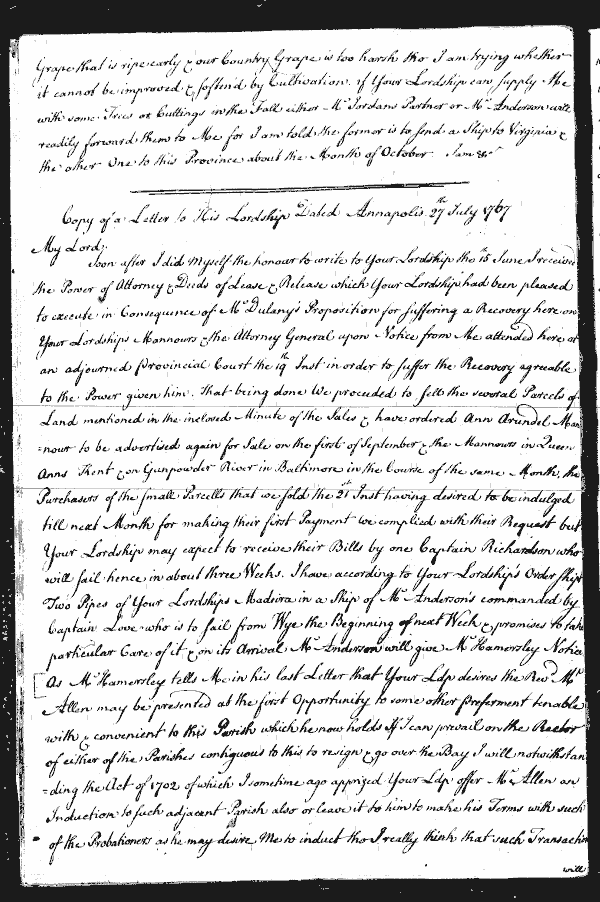 Grape that is ripe early & our Country Grape is too harsh tho I am trying whether
it cannot be improved & softend by Cultivation. if Your Lordship can supply Me
with some Trees or Cuttings in the Fall either Mr Jordans Partner or Mr Anderson will
readily forward them to Me for I am told the former is to send a Ship to Virginia &
the other One to this Province about the Month of October. I am &ca
Copy of a Letter to His Lordship Dated Annapolis 27th July 1767
My Lord,
Soon after I did myself the honour to write to Your Lordship the 15th June I received
the Power of Attorney & Deeds of Lease & Release which Your Lordship had been pleased
to execute in Consequence of Mr Dulany's Proposition for suffering a Recovery here on
Your Lordships Mannours & the Attorney General upon Notice from Me attended here at
an adjourned Provincial Court the 19th Inst in order to suffer the Recovery agreeable
to the Power given him. That being done We proceeded to sell the several Parcels of
Land mentioned in the inclosed Minute of the Sales & have ordered Ann Arundel Man
=nour to be advertised again for Sale on the first of September & the Mannours in Queen
Anns Kent & on Gunpowder River in Baltimore in the Course of the same Month, the
Purchasers of the small Parcells that we sold the 21st Inst having desired to be indulged
till next Month for making their first Payment we complied with their Request but
Your Lordship may expect to receive their Bills by one Captain Richardson who
will sail hence in about three Weeks. I have according to Your Lordship's Order Shipt
Two Pipes of Your Lordships Madeira in a Ship of Mr Anderson's commanded by
Captain Love who is to sail from Wye the Beginning of next Week & promises to take
particular Care of it & on its Arrival Mr Anderson will give Mr Hamersley Notice
As Mr Hamersley tells Me in his last Letter that Your Ldp desires the Revd Mr
Allen may be presented at the first Opportunity to some other Preferment tenable
with & convenient to this Parish which he now holds If I can prevail on the Rector
of either of the Parishes contiguous to this to resign & go over the Bay I will notwithstan
=ding the Act of 1702 of which I sometime ago apprized Your Ldp offer Mr Allen an
Induction to such adjacent Parish also or leave it to him to make his Terms with such
of the Probationers as he may desire Me to induct tho I really think that such Transaction
will